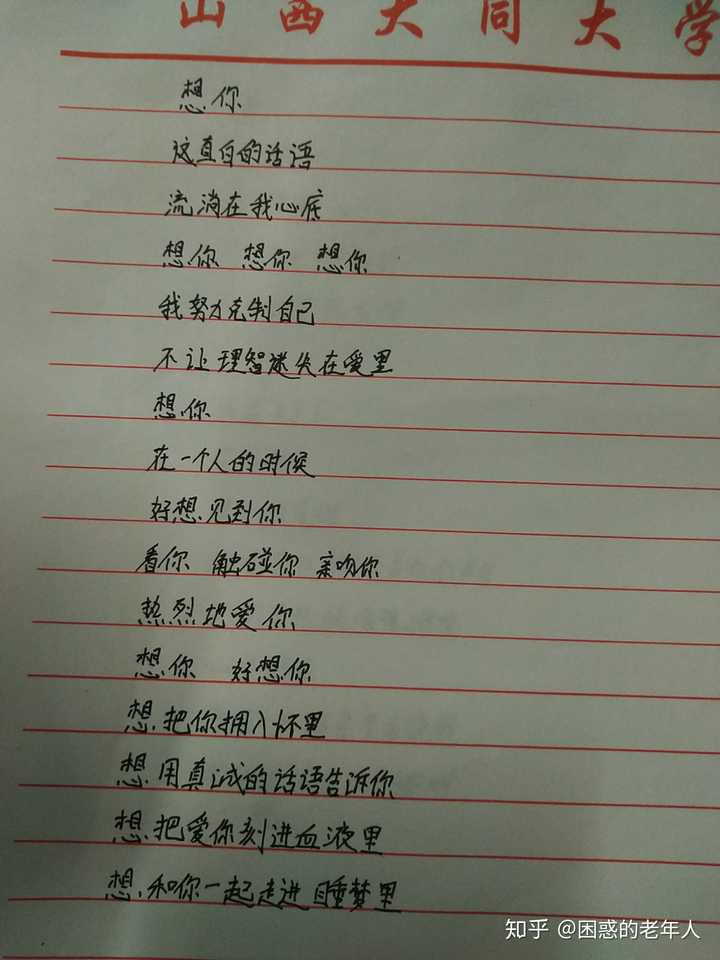 山西大同大学
想你
这直白的话语
流淌在我心底
想你 想你 想你
我努力克制自己
不让理智迷失在爱里
想你
在一个人的时候
好想见到你
看你 触碰你 亲吻你
热烈地爱你
想你 好想你
想把你拥入怀里
想用真诚的话语告诉你
想把爱你刻进血液里
想和你一起走进睡梦里
知乎 @困惑的老年人